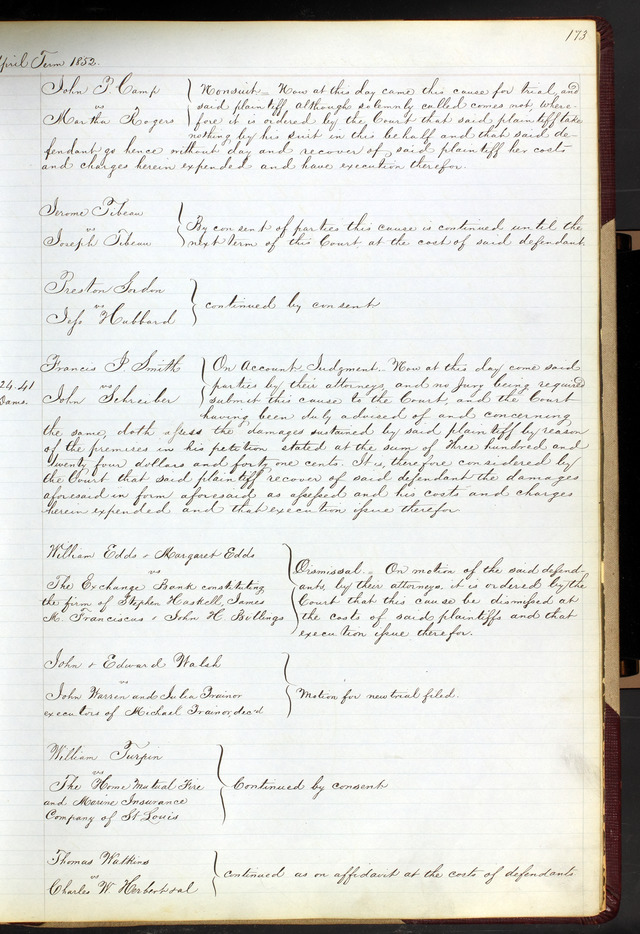 173
April Term 1852.
John T Camp
vs
Martha Rogers
Nonsuit = Now at this day came this cause for trial, and
said plaintiff although solemnly called comes not, where-
fore it is ordered by the Court that said plaintiff take
nothing by his suit in this behalf and that said de-
fendant go hence without day and recover of said plaintiff her costs
and charges herein expended and have execution therefor.
Jerome Tibeau
vs
Joseph Tibeau
By consent of parties this cause is continued until the
next term of this Court at the cost of said defendant.
Preston Jordon
vs
Jefs Hubbard
continued by consent
24.41
Dams.
Francis P Smith
vs
John Schreiber
On Account Judgment. Now at this day come said
parties by their attorneys, and no Jury being required
submit this cause to the Court, and the Court
having been duly advised of and concerning
the same, doth assess the damages sustained by said plaintiff by reason
of the premises in his petition stated at the sum of three hundred and
twenty four dollars and forty one cents. It is, therefore considered by
the Court that said plaintiff recover of said defendant the damages
aforesaid in form aforesaid as assessed and his costs and charges
herein expended and that execution issue therefor
William Edds & Margaret Edds
vs
The Exchange Bank constituting
the firm of Stephen Haskell, James
M. Franciscus & John H. Bollings
Dismissal = On motion of the said defend-
ants, by their attorneys, it is ordered by the
Court that this cause be dismissed at
the costs of said plaintiffs and that
execution issue therefor.
John & Edward Walsh
vs
John Warren and Julia Trainor
executors of Michael Trainor, dec'd
Motion for new trial filed.
William Turpin
vs
The Home Mutual Fire
and Marine Insurance
Company of St Louis
Continued by consent
Thomas Watkins
vs
Charles W. Herbert et al
continued as on affidavit at the costs of defendants